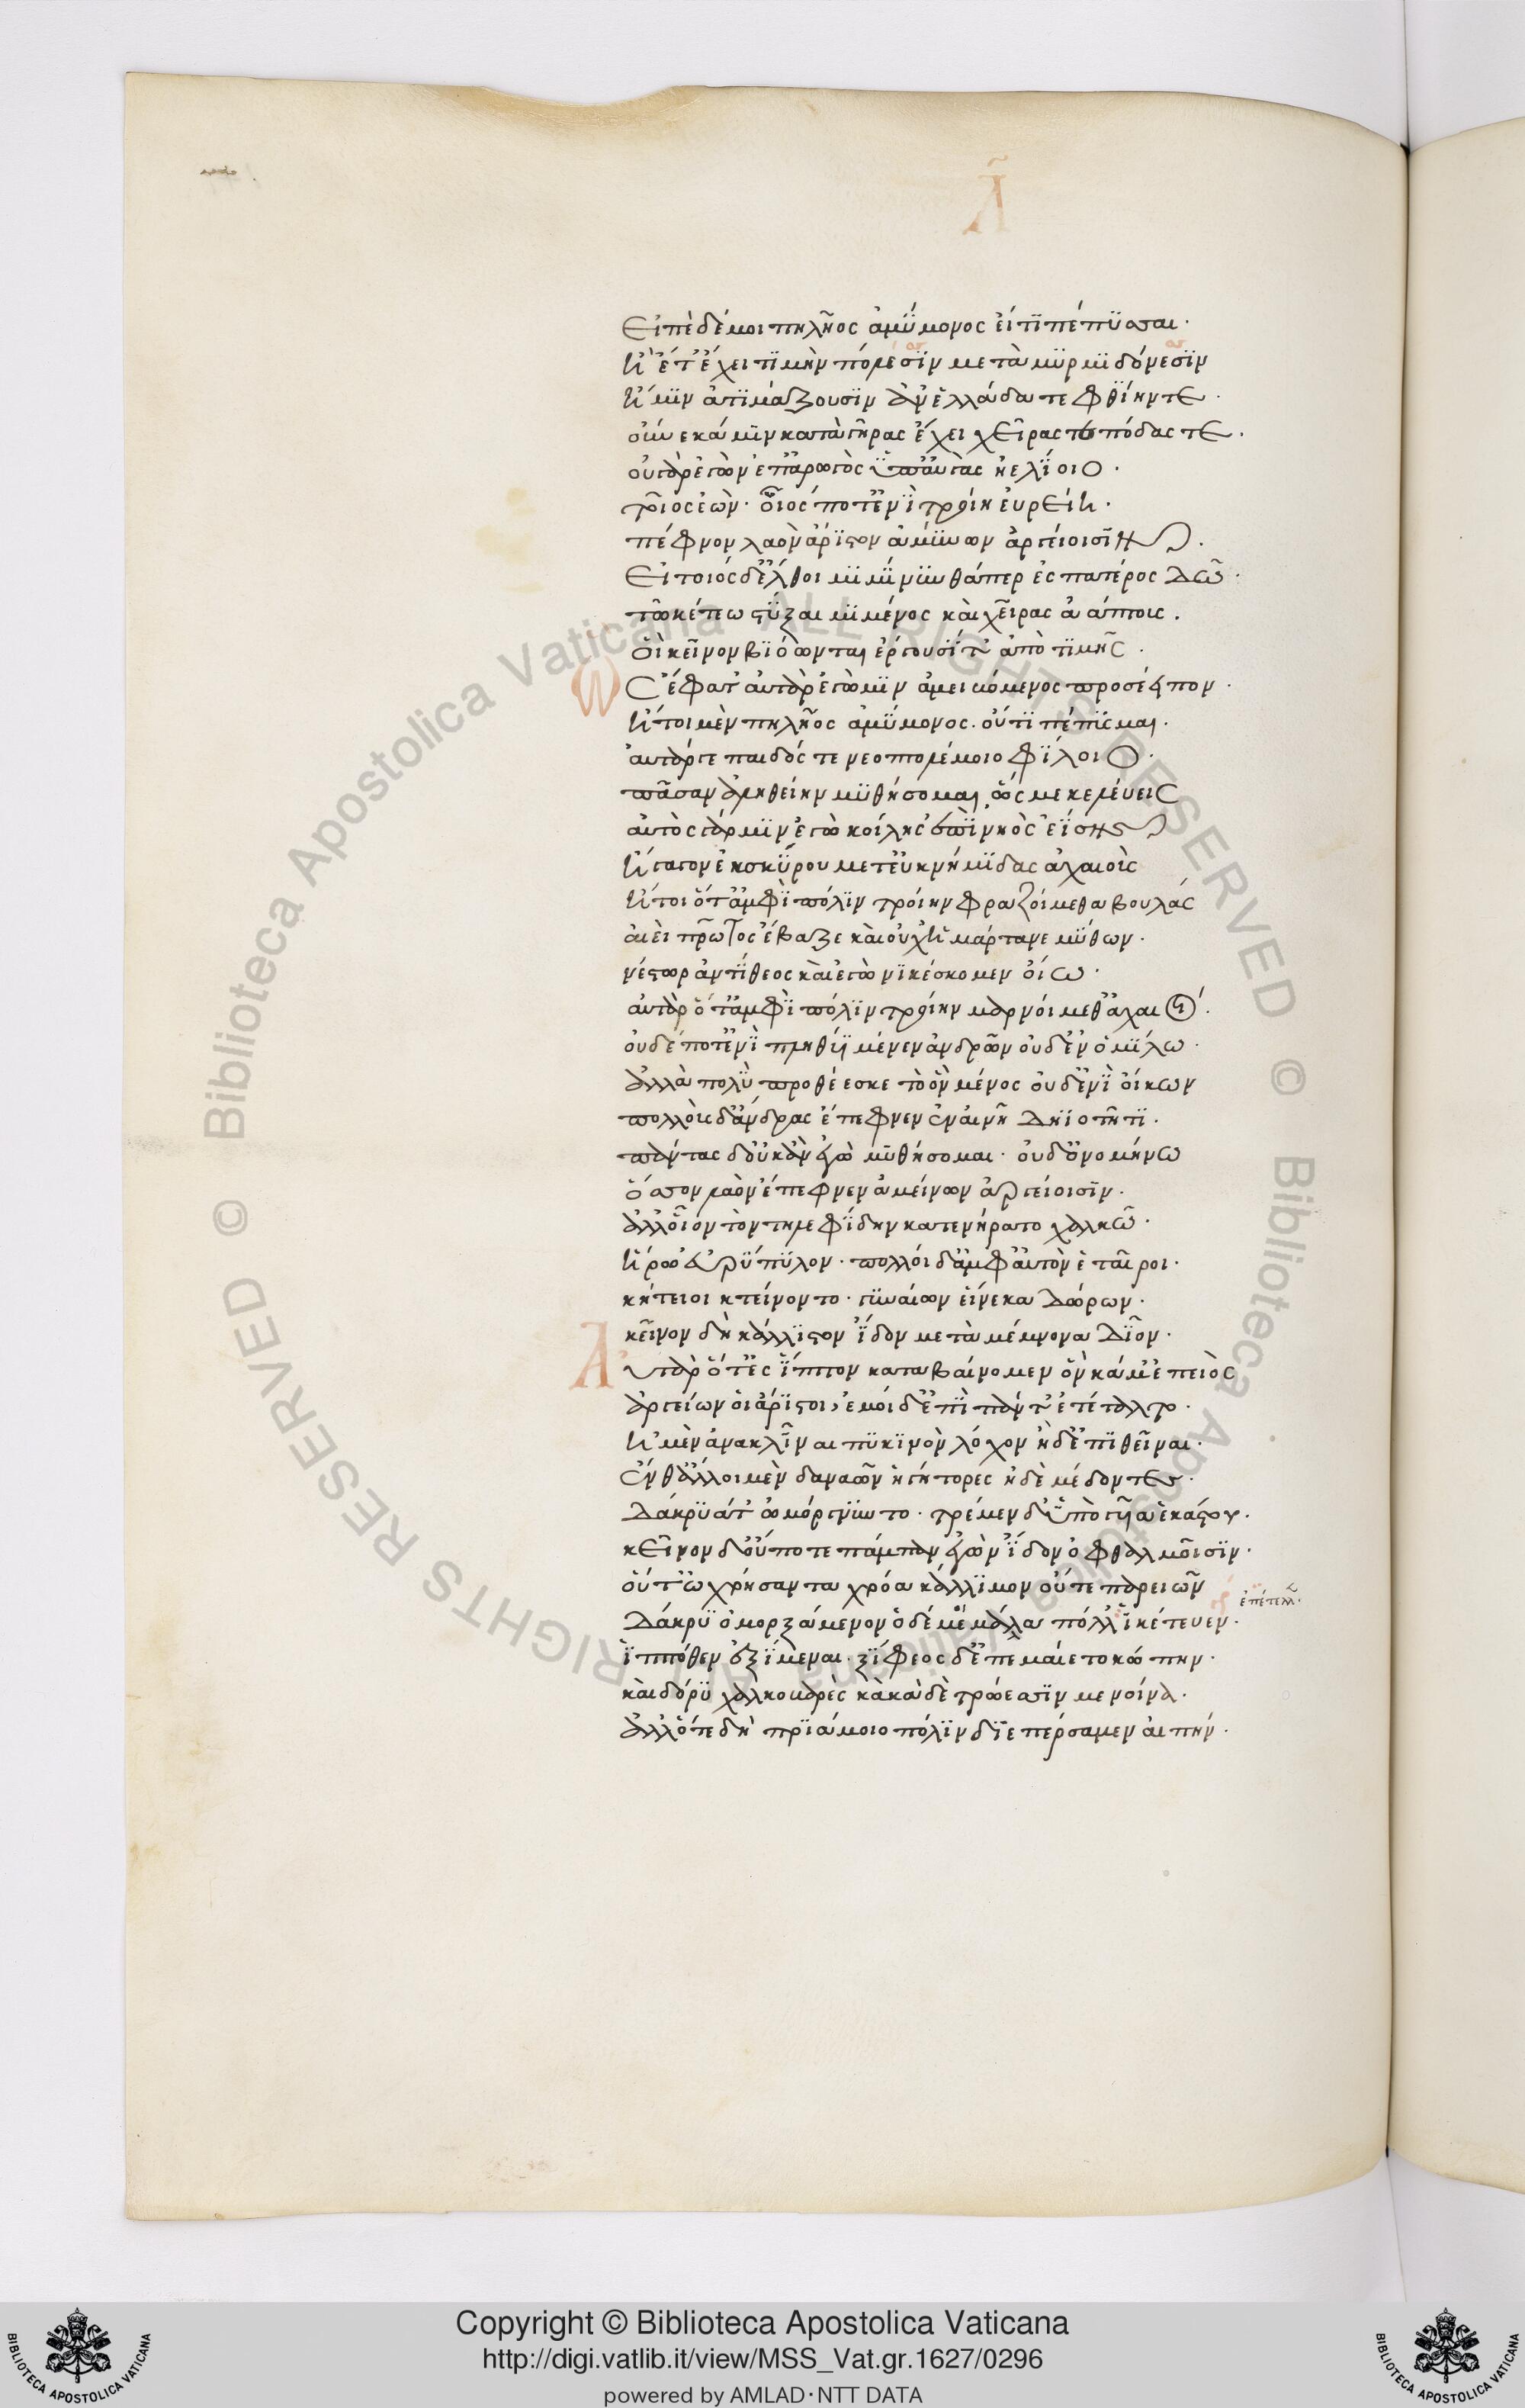 Λ
Εἰπὲ δέ μοι πηλῆος ἀμύμονος εἴ τι πέπυσσαι·
ἢ ἔτ' ἔχει τιμὴν πόλεσιν μετὰ μυρμιδόνεσιν
ἤ μιν ἀτιμάζουσιν ἀν' ἑλλάδα τε φθίην τε·
οὕνεκά μιν κατὰ γῆρας ἔχει χεῖρας τε πόδας τε·
οὐ γὰρ ἐγὼν ἐπαρωγὸς ὑπ' αὐγὰς ἠελίοιο·
τοῖος ἐὼν· οἷός ποτ' ἐνὶ τροίῃ εὐρείῃ·
πέφνον λαὸν ἄριστον ἀμύνων ἀργείοισιν·
Εἰ τοιόσδ' ἔλθοιμι μίνυνθά περ ἐς πατέρος δῶ·
τῷ κέ τεῳ στύξαιμι μένος καὶ χεῖρας ἀάπτοις·
οἳ κεῖνον βιόωνται ἔργουσί τ' ἀπὸ τιμῆς·
Ὣς ἔφατ' αὐτὰρ ἐγώ μιν ἀμειβόμενος προσέειπον·
ἤτοι μὲν πηλῆος ἀμύμονος· οὔτι πέπυσμαι·
αὐτάρ τε παιδός τε νεοπτολέμοιο φίλοιο·
πᾶσαν ἀληθείην μυθήσομαι, ὥς με κελεύεις
αὐτὸς γάρ μιν ἐγὼ κοίλης ἐπὶ νηὸς ἐΐσης
ἤγαγον ἐκ σκύρου μετ' ἐϋκνήμιδας ἀχαιοὺς
ἤτοι ὅτ' ἀμφὶ πόλιν τροίην φραζοίμεθα βουλάς
αἰεὶ πρῶτος ἔβαζε καὶ οὐχ ἡμάρτανε μύθων·
νέστωρ ἀντίθεος καὶ ἐγὼ νικέσκομεν οἴω·
αὐτὰρ ὅτ' ἀμφὶ πόλιν τροίην μαρνοίμεθ' ἀχαιοί·
οὐδέ ποτ' ἐνὶ πληθύϊ μένεν ἀνδρῶν οὐδ' ἐν ὁμίλω·
ἀλλὰ πολὺ προθέεσκε τὸ ὃν μένος οὐδενὶ οἴκων
πολλοὺς δ' ἄνδρας ἔπεφνεν ἐν αἰνῇ δηϊοτῆτι·
πάντας δ' οὐκ ἂν ἐγὼ μυθήσομαι· οὐδ' ὀνομήνω
ὅσσον λαὸν ἔπεφνεν ἀμείνων ἀργείοισιν·
ἀλλ' οἷον τὸν τηλεφίδην κατενήρατο χαλκῶ·
ἥρω' εὐρύπυλον· πολλοὶ δ' ἀμφ' αὐτὸν ἑταῖροι·
κήτειοι κτείνοντο· γυναίων εἵνεκα δώρων·
κεῖνον δὴ κάλλιστον ἴδον μετὰ μέμνονα δῖον·
Αὐτὰρ ὅτ' ἐς ἵππον καταβαίνομεν ὃν κάμ' ἐπειὸς
ἀργείων οἱ ἄριστοι, ἐμοὶ δ' ἐπὶ πάντ' ἐτέταλτο·
ἠμὲν ἀνακλῖναι πυκινὸν λόχον ἠδ' ἐπιθεῖναι·
ἔνθ' ἄλλοι μὲν δαναῶν ἡγήτορες ἠδὲ μέδοντες·
δάκρυά τ' ὠμόργνυντο· τρέμεν δ' ὑπὸ γυῖα ἑκάστου·
κεῖνον δ' οὔποτε πάμπαν ἐγὼν ἴδον ὀφθαλμοῖσιν·
οὔτ' ὠχρήσαντα χρόα κάλλιμον οὔτε παρειῶν
δάκρυ ὀμορξάμενον ὁ δέ με μάλα πόλλ' ἱκέτευεν· ἐπέτελλ·
ἱππόθεν ἐξίμεναι· ξίφεος δ' ἐπεμαίετο κώπην·
καὶ δόρυ χαλκοβαρὲς κακὰ δὲ τρώεσσιν μενοίνα·
ἀλλ' ὅτε δὴ πριάμοιο πόλιν διεπέρσαμεν αἰπήν·
© Biblioteca Apostolica Vaticana ALL RIGHTS RESERVED © Biblioteca Apostolica Vaticana ALL RIGHTS RESERVED
Copyright © Biblioteca Apostolica Vaticana
http://digi.vatlib.it/view/MSS_Vat.gr.1627/0296
powered by AMLAD·NTT DATA
BIBLIOTECA APOSTOLICA VATICANA
BIBLIOTECA APOSTOLICA VATICANA